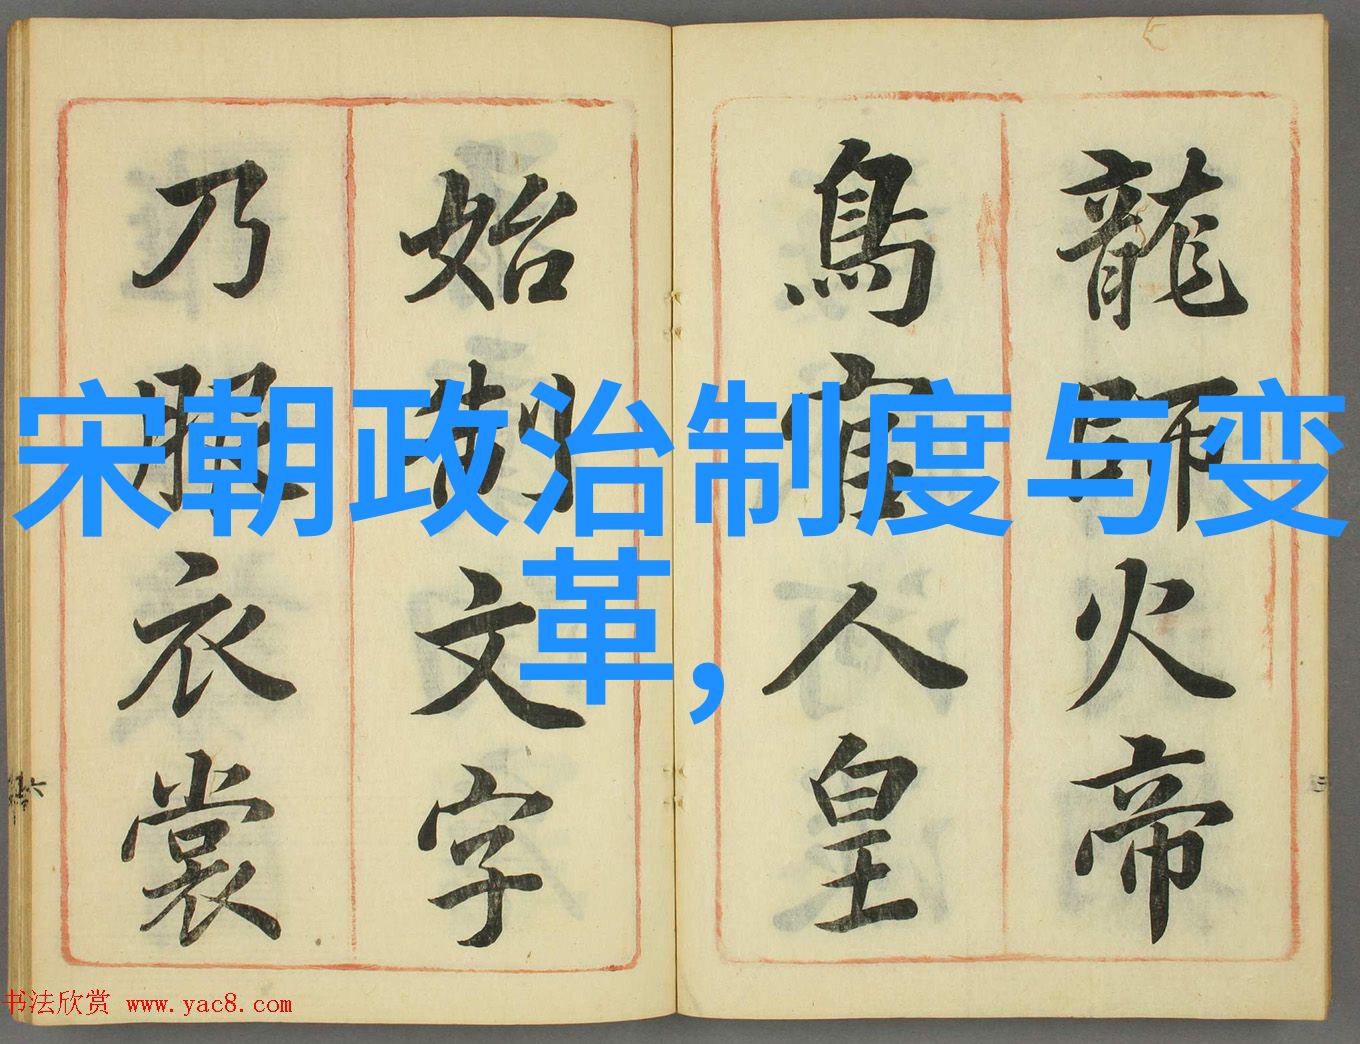 龍師火帝
鳥官人皇
始制文字
乃服衣裳
宋朝政治制度与变
革,
书法欣赏 www.yac8.com